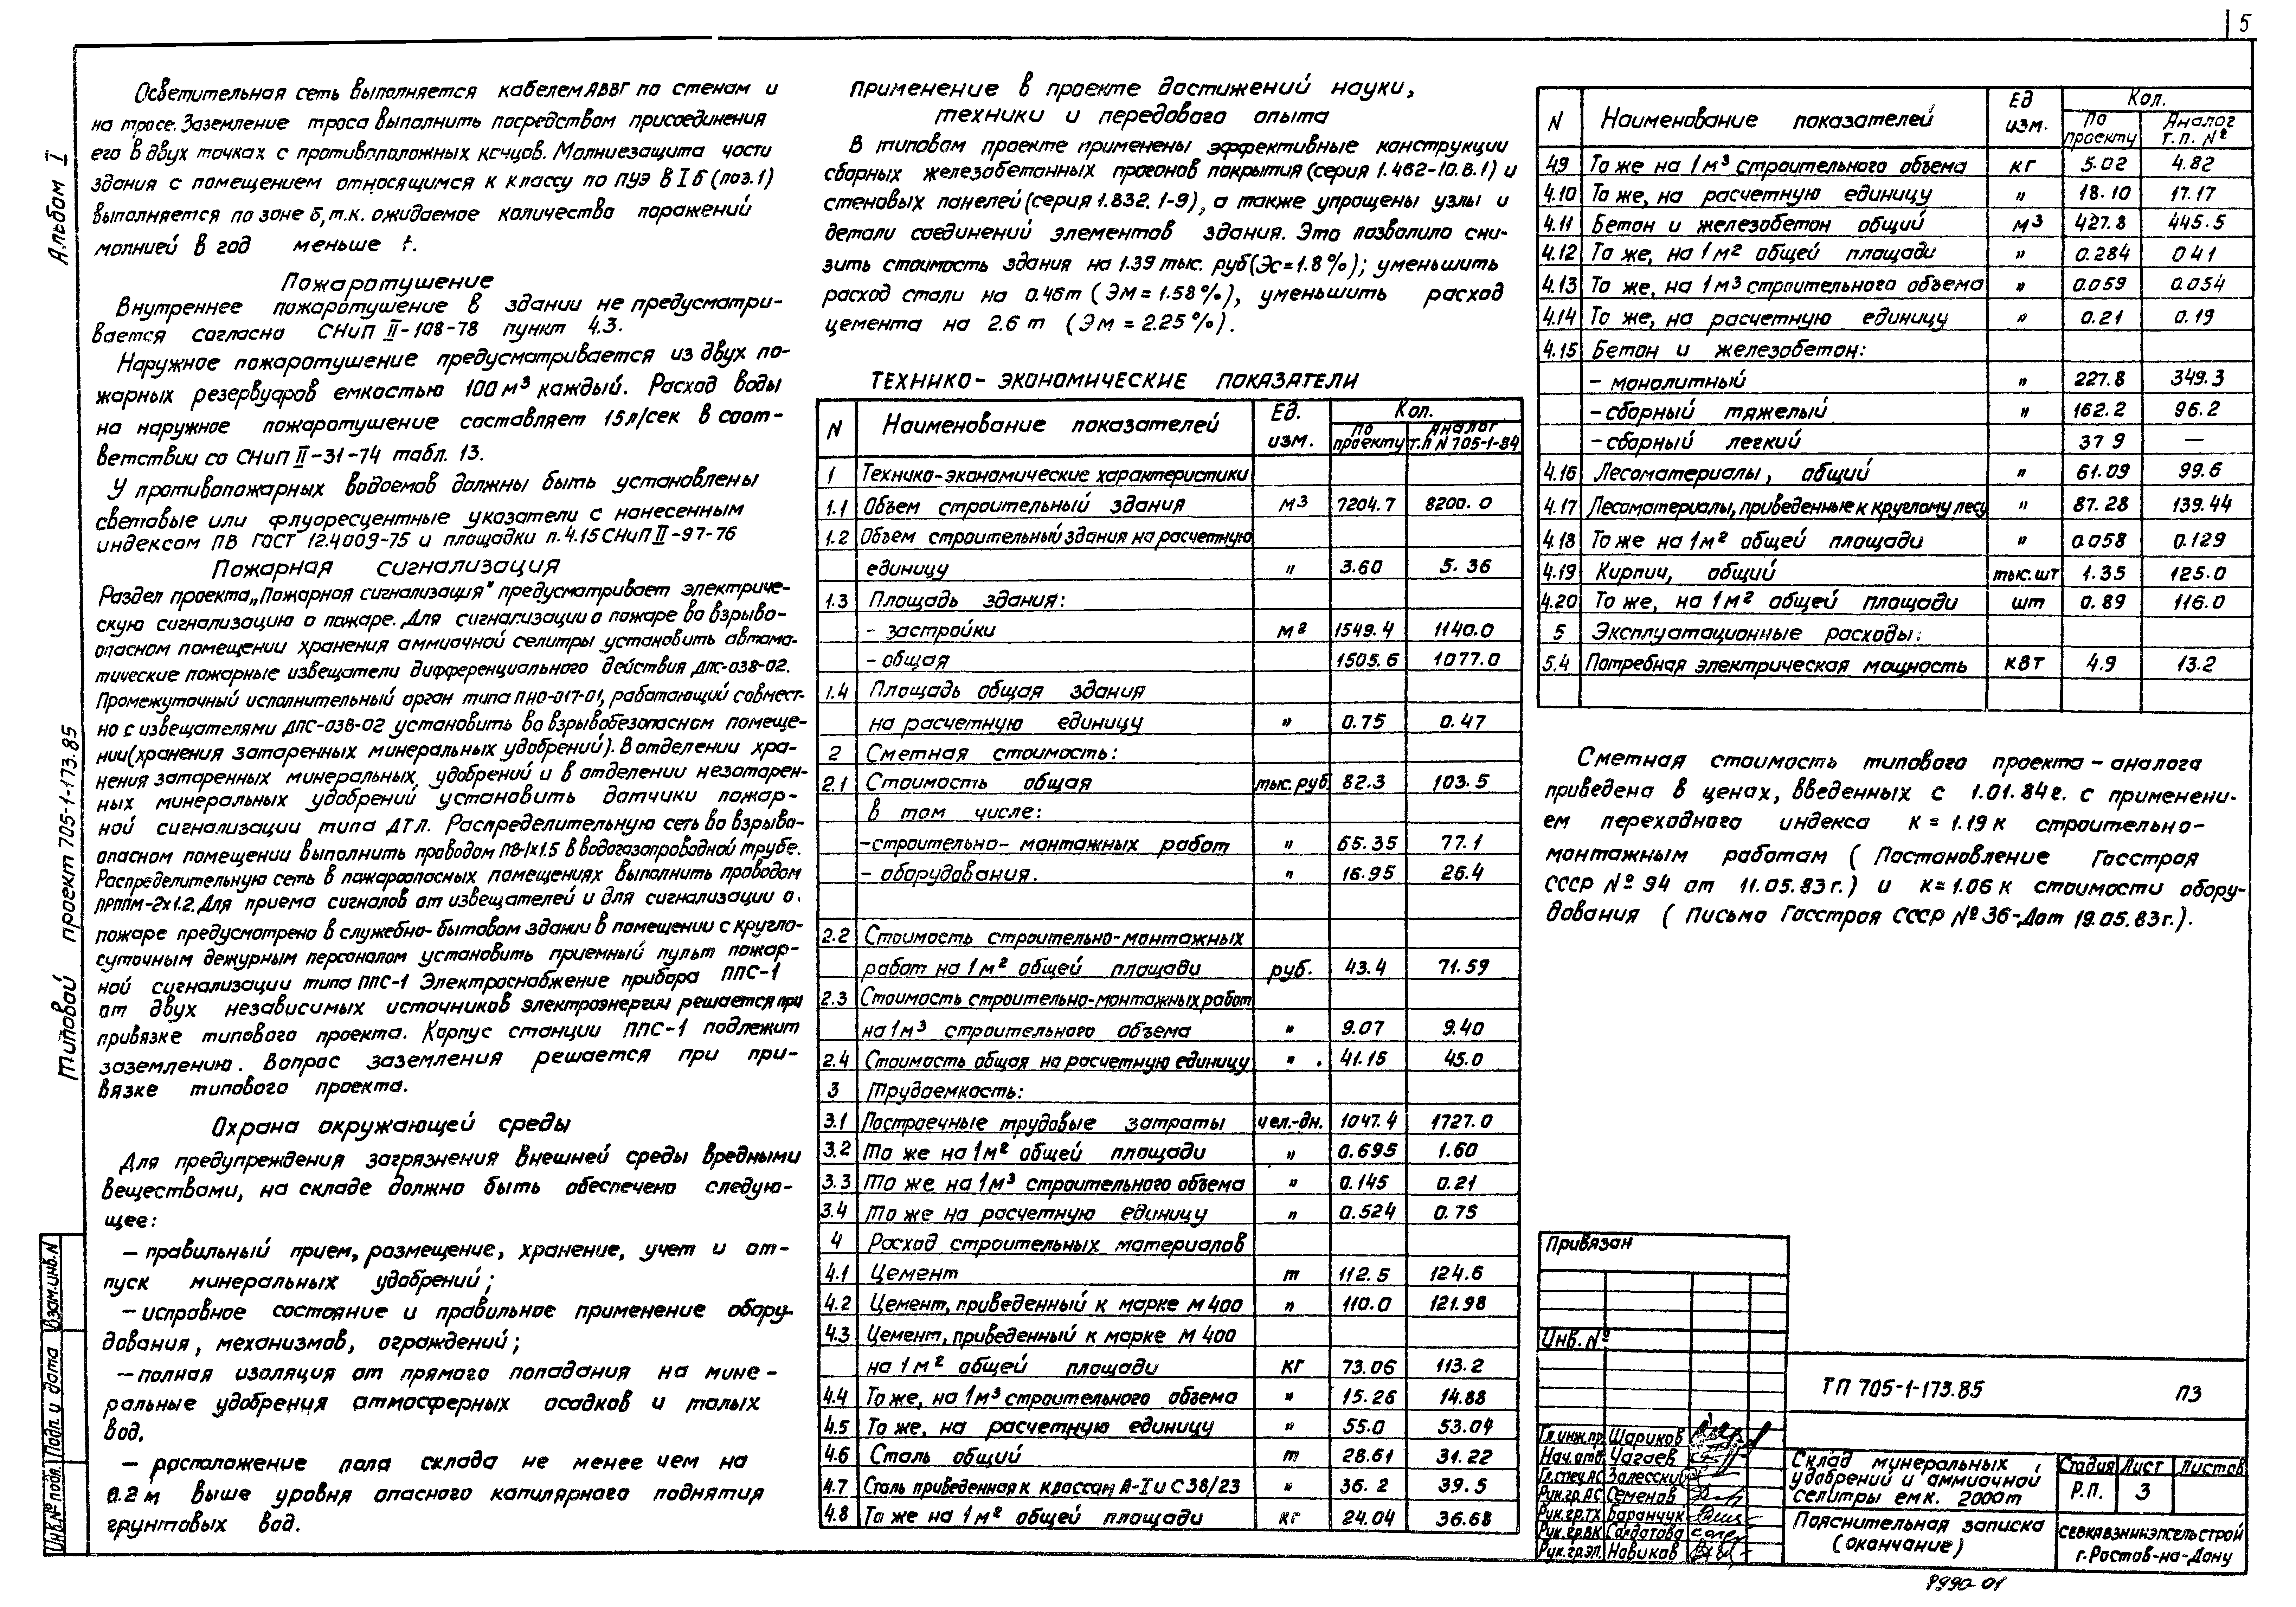 5
Альбом I
Типовой проект 705-1-173.85
Осветительная сеть выполняется кабелем АВВГ по стенам и
на тросе. Заземление троса выполнить посредством присоединения
его в двух точках с противоположных концов. Молниезащита части
здания с помещением относящимся к классу по ПУЭ В I б (поз. 1)
выполняется по зоне Б, т.к. ожидаемое количество поражений
молнией в год меньше 1.
Пожаротушение
Внутреннее пожаротушение в здании не предусматри-
вается согласно СНиП II-108-78 пункт 4.3.
Наружное пожаротушение предусматривается из двух по-
жарных резервуаров емкостью 100 м³ каждый. Расход воды
на наружное пожаротушение составляет 15 л/сек в соот-
ветствии со СНиП II-31-74 табл. 13.
У противопожарных водоемов должны быть установлены
световые или флуоресцентные указатели с нанесенным
индексом ПВ ГОСТ 12.4009-75 и площадки п. 4.15 СНиП II-97-76
Пожарная сигнализация
Раздел проекта „Пожарная сигнализация" предусматривает электриче-
скую сигнализацию о пожаре. Для сигнализации о пожаре во взрыво-
опасном помещении хранения аммиачной селитры установить автома-
тические пожарные извещатели дифференциального действия ДПС-038-02.
Промежуточный исполнительный орган типа ПИО-017-01, работающий совмест-
но с извещателями ДПС-038-02 установить во взрывобезопасном помеще-
нии (хранения затаренных минеральных удобрений). В отделении хра-
нения затаренных минеральных удобрений и в отделении незатарен-
ных минеральных удобрений установить датчики пожар-
ной сигнализации типа ДТЛ. Распределительную сеть во взрыво-
опасном помещении выполнить проводом ПВ-1х1.5 в водогазопроводной трубе.
Распределительную сеть в пожароопасных помещениях выполнить проводом
ПРППМ-2х1.2. Для приема сигналов от извещателей и для сигнализации о
пожаре предусмотрено в служебно-бытовом здании в помещении с кругло-
суточным дежурным персоналом установить приемный пульт пожар-
ной сигнализации типа ППС-1 Электроснабжение прибора ППС-1
от двух независимых источников электроэнергии решается при
привязке типового проекта. Корпус станции ППС-1 подлежит
заземлению. Вопрос заземления решается при при-
вязке типового проекта.
Охрана окружающей среды
Для предупреждения загрязнения внешней среды вредными
веществами, на складе должно быть обеспечено следую-
щее:
— правильный прием, размещение, хранение, учет и от-
пуск минеральных удобрений;
— исправное состояние и правильное применение обору-
дования, механизмов, ограждений;
— полная изоляция от прямого попадания на мине-
ральные удобрения атмосферных осадков и талых
вод.
— расположение пола склада не менее чем на
0.2 м выше уровня опасного капилярного поднятия
грунтовых вод.
применение в проекте достижений науки,
техники и передового опыта
В типовом проекте применены эффективные конструкции
сборных железобетонных прогонов покрытия (серия 1.462-10.В.1) и
стеновых панелей (серия 1.832.1-9), а также упрощены узлы и
детали соединений элементов здания. Это позволило сни-
зить стоимость здания на 1.39 тыс. руб (Эс=1.8%); уменьшить
расход стали на 0.46т (Эм=1.58%), уменьшить расход
цемента на 2.6 т (Эм=2.25%).
ТЕХНИКО-ЭКОНОМИЧЕСКИЕ ПОКАЗАТЕЛИ
N Наименование показателей Ед. изм. Кол.
По проекту Аналог Т.П N 705-1-84
1 Технико-экономические характеристики
1.1 Объем строительный здания м³ 7204.7 8200.0
1.2 Объем строительный здания на расчетную
единицу " 3.60 5.36
1.3 Площадь здания:
- застройки м² 1549.4 1140.0
- общая 1505.6 1077.0
1.4 Площадь общая здания
на расчетную единицу " 0.75 0.47
2 Сметная стоимость:
2.1 Стоимость общая тыс.руб 82.3 103.5
в том числе:
-строительно-монтажных работ " 65.35 77.1
- оборудования. " 16.95 26.4
2.2 Стоимость строительно-монтажных
работ на 1 м² общей площади руб. 43.4 71.59
2.3 Стоимость строительно-монтажных работ
на 1 м³ строительного объема " 9.07 9.40
2.4 Стоимость общая на расчетную единицу " 41.15 45.0
3 Трудоемкость:
3.1 Построечные трудовые затраты чел.-дн. 1047.4 1727.0
3.2 То же на 1 м² общей площади " 0.695 1.60
3.3 То же на 1 м³ строительного объема " 0.145 0.21
3.4 То же на расчетную единицу " 0.524 0.75
4 Расход строительных материалов
4.1 Цемент т 112.5 124.6
4.2 Цемент, приведенный к марке М 400 " 110.0 121.98
4.3 Цемент, приведенный к марке М 400
на 1 м² общей площади кг 73.06 113.2
4.4 То же, на 1 м³ строительного объема " 15.26 14.88
4.5 То же, на расчетную единицу " 55.0 53.04
4.6 Сталь общий т 28.61 31.22
4.7 Сталь приведенная к классам А-I и С 38/23 " 36.2 39.5
4.8 То же на 1 м² общей площади кг 24.04 36.68
N Наименование показателей Ед изм. Кол.
По проекту Аналог Т.П. №
49 То же на 1 м³ строительного объема кг 5.02 4.82
4.10 То же, на расчетную единицу " 18.10 17.17
4.11 Бетон и железобетон общий м³ 427.8 445.5
4.12 То же, на 1 м² общей площади " 0.284 0 41
4.13 То же, на 1 м³ строительного объема " 0.059 0.054
4.14 То же, на расчетную единицу " 0.21 0.19
4.15 Бетон и железобетон:
- монолитный " 227.8 349.3
- сборный тяжелый " 162.2 96.2
- сборный легкий 37 9 —
4.16 Лесоматериалы, общий " 61.09 99.6
4.17 Лесоматериалы, приведенные к круглому лесу " 87.28 139.44
4.18 То же на 1 м² общей площади " 0.058 0.129
4.19 Кирпич, общий тыс.шт 1.35 125.0
4.20 То же, на 1 м² общей площади шт 0.89 116.0
5 Эксплуатационные расходы:
5.4 Потребная электрическая мощность квт 4.9 13.2
Сметная стоимость типового проекта-аналога
приведена в ценах, введенных с 1.01.84г. с применени-
ем переходного индекса к=1.19 к строительно-
монтажным работам (Постановление Госстроя
СССР №94 от 11.05.83г.) и к=1.06 к стоимости обору-
дования (письмо Госстроя СССР №36-Д от 19.05.83г.).
Привязан
Инв. №
ТП 705-1-173.85 ПЗ
Гл.инж.пр. Шариков
Нач.отд. Чагаев
Гл.спец.АС Залесский
Рук.гр.АС Семенов
Рук.гр.ТХ Баранчук
Рук.гр.ВК Солдатова
Рук.гр.ЭЛ. Новиков
Склад минеральных
удобрений и аммиачной
селитры емк. 2000т
Стадия Лист Листов
Р.П. 3
Пояснительная записка
(окончание)
СЕВКАВЗНИИЭПСЕЛЬСТРОЙ
г.Ростов-на-Дону
Взам.инв.N
Подп. и дата
Инв.№ подл.
8990-01